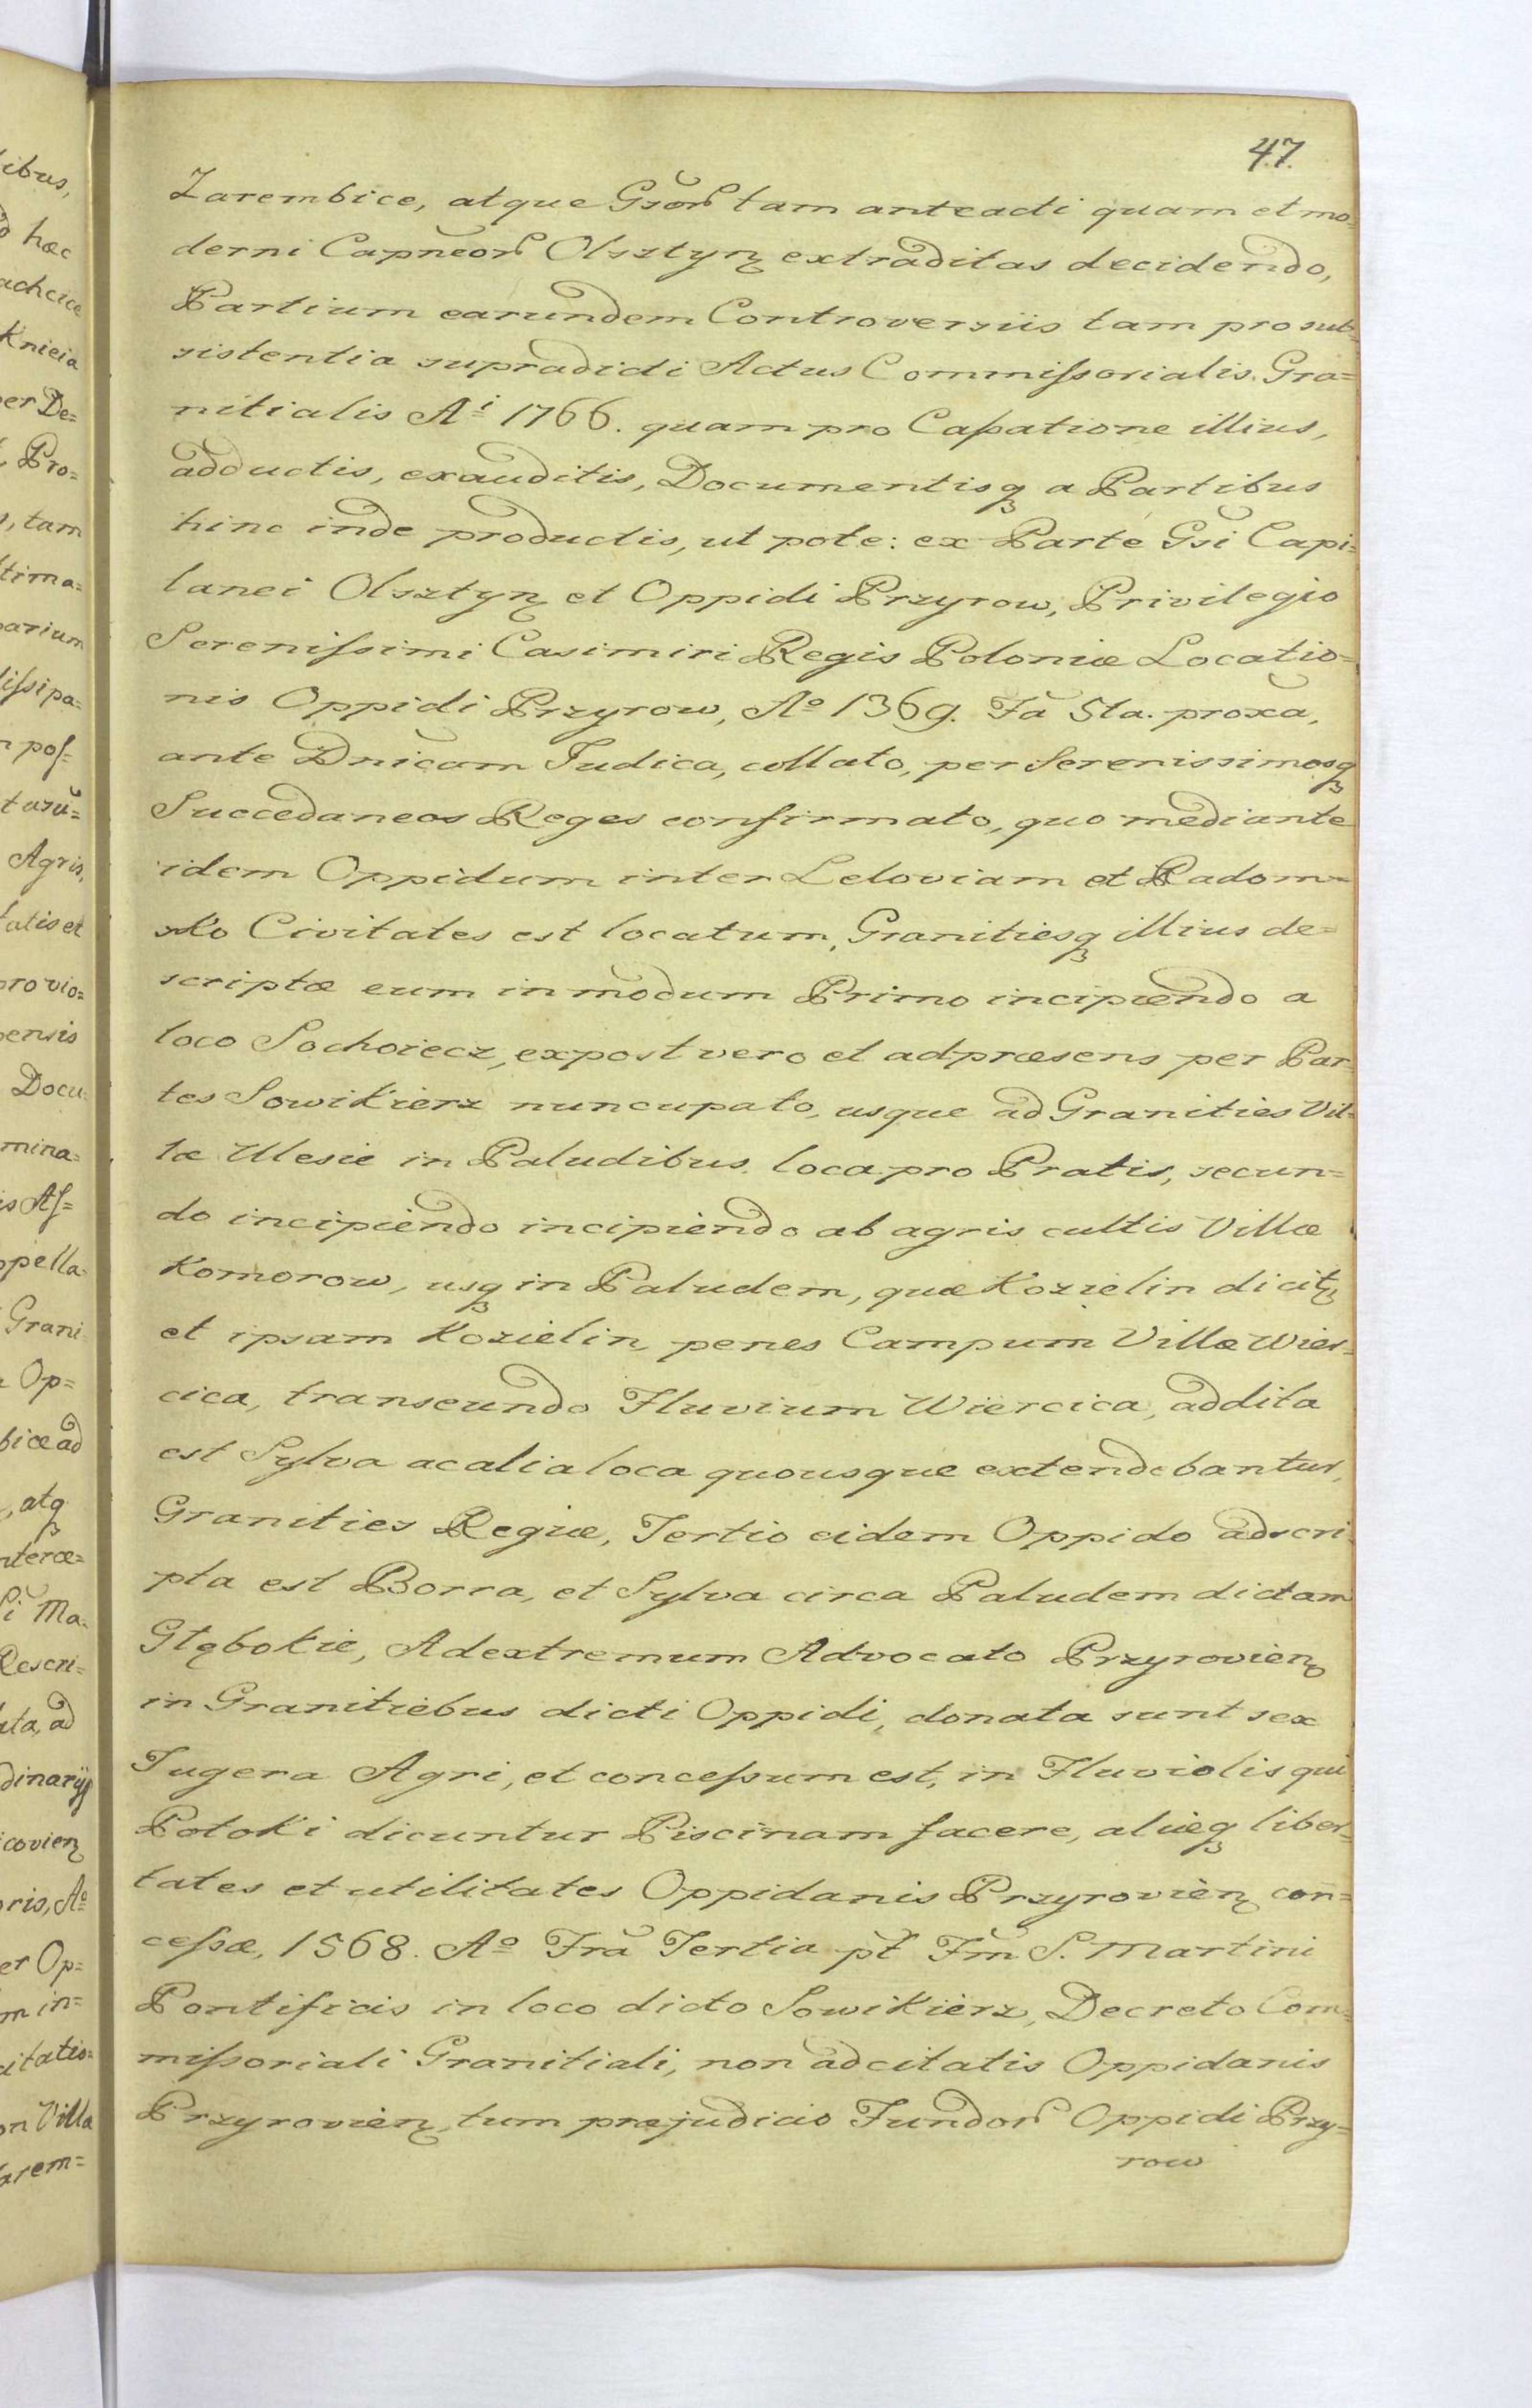 47.
Zarembice, atque Gsor̃ tam anteacti quam et mo=
derni Capneor̃ Olsztyn extraditas decidendo,
Partium earundem Controversiis tam pro sub=
sistentia supradicti Actus Commiſsorialis Gra=
nitialis Aⁱ 1766. quam pro Caſsatione illius,
adductis, exauditis, Documentisq a Partibus
hinc inde productis, ut pote: ex Parte Gsi Capi=
tanei Olsztyn et Oppidi Przyrow, Privilegio
Sereniſsimi Casimiri Regis Poloniæ Locatio=
nis Oppidi Przyrow, Aº 1369. Fã 5ta. proxã,
ante Dnicam Judica, collato, per Serenissimosq
Succedaneos Reges confirmato, quo mediante
idem Oppidum inter Leloviam et Radom=
sko Civitates est locatum, Granitiesq illius de=
scriptæ eum in modum Primo incipiendo a
loco Sochoriecz, expost vero et adpræsens per Par=
tes Sowikierz nuncupato, usque ad Granities Vil=
læ Ulesie in Paludibus loca pro Pratis, secun=
do incipiendo incipiendo ab agris cultis Villæ
Komorow, usq in Paludem, quæ Kozielin dicit
et ipsam Kozielin, penes Campum Villæ Wier=
cica, transeundo Fluvium Wiercica, addita
est Sylva ac alia loca quousque extendebantur,
Granities Regiæ, Tertio eidem Oppido adscri=
pta est Borra, et Sylva circa Paludem dictam
Głębokie, Adextremum Advocato Przyrovien
in Granitiebus dicti Oppidi, donata sunt sex
Jugera Agri, et conceſsum est, in Fluviolis qui
Potoki dicuntur Piscinam facere, aliæq liber=
tates et utilitates Oppidanis Przyrovien con=
ceſsæ, 1568. Aº Frã Tertia pt̃ Fm̃ S. Martini
Pontificis in loco dicto Sowikierz, Decreto Com=
miſsoriali Granitiali, non adcitatis Oppidanis
Przyrovien, tum præjudicio Fundor̃ Oppidi Przy=
row